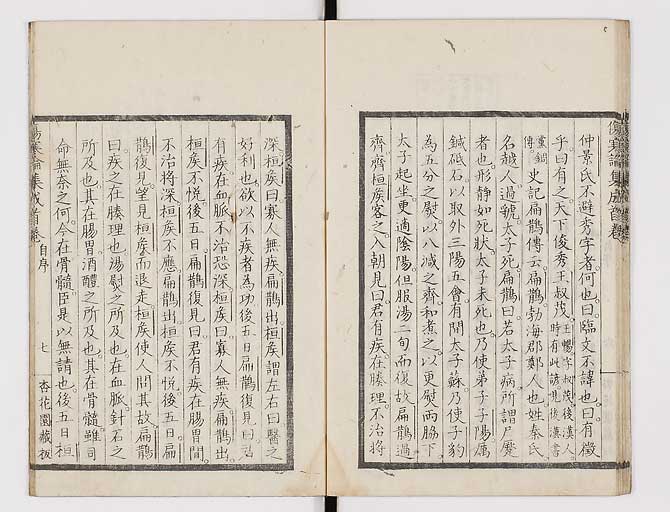 傷寒論集成首卷
仲景氏不避秀字者何也曰臨文不諱也曰有徵
乎曰有之天下俊秀王叔茂王暢字叔茂後漢人時有此諺見後漢書
黨錮傳史記扁鵲傳云扁鵲勃海郡鄭人也姓秦氏
名越人過虢太子死扁鵲曰若太子病所謂尸蹷
者也形靜如死狀太子未死也乃使弟子子陽厲
鍼砥石以取外三陽五會有間太子蘇乃使子豹
為五分之熨以八减之齊和煮之以更熨兩脇下
太子起坐更適陰陽但服湯二旬而復故扁鵲過
齊齊桓矦客之入朝見曰君有疾在腠理不治將
深桓矦曰寡人無疾扁鵲出桓矦謂左右曰醫之
好利也欲以不疾者為功後五日扁鵲復見曰君
有疾在血脈不治恐深桓矦曰寡人無疾扁鵲出
桓矦不悅後五日扁鵲復見曰君有疾在腸胃間
不治將深桓矦不應扁鵲出桓矦不悅後五日扁
鵲復見望見桓矦而退走桓矦使人問其故扁鵲
曰疾之在腠理也湯熨之所及也在血脈針石之
所及也其在腸胃酒醴之所及也其在骨髓雖司
命無奈之何今在骨髓臣是以無請也後五日桓
傷寒論集成首卷 自序 七 杏花園藏板